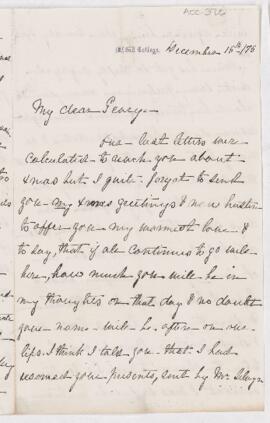 ACC-376
McGill College.
December 15th/76
My dear Percy-
Our last letters were
calculated to reach you about
Xmas but I quite forgot to send
you my Xmas greetings & now hasten
to offer you my warmest love &
to say, that if all continues to go well
here, how much you will be in
my thoughts on that day & no doubt
your name will be often on our
lips. I think I told you that I had
received your presents, sent by Mr. Selwyn